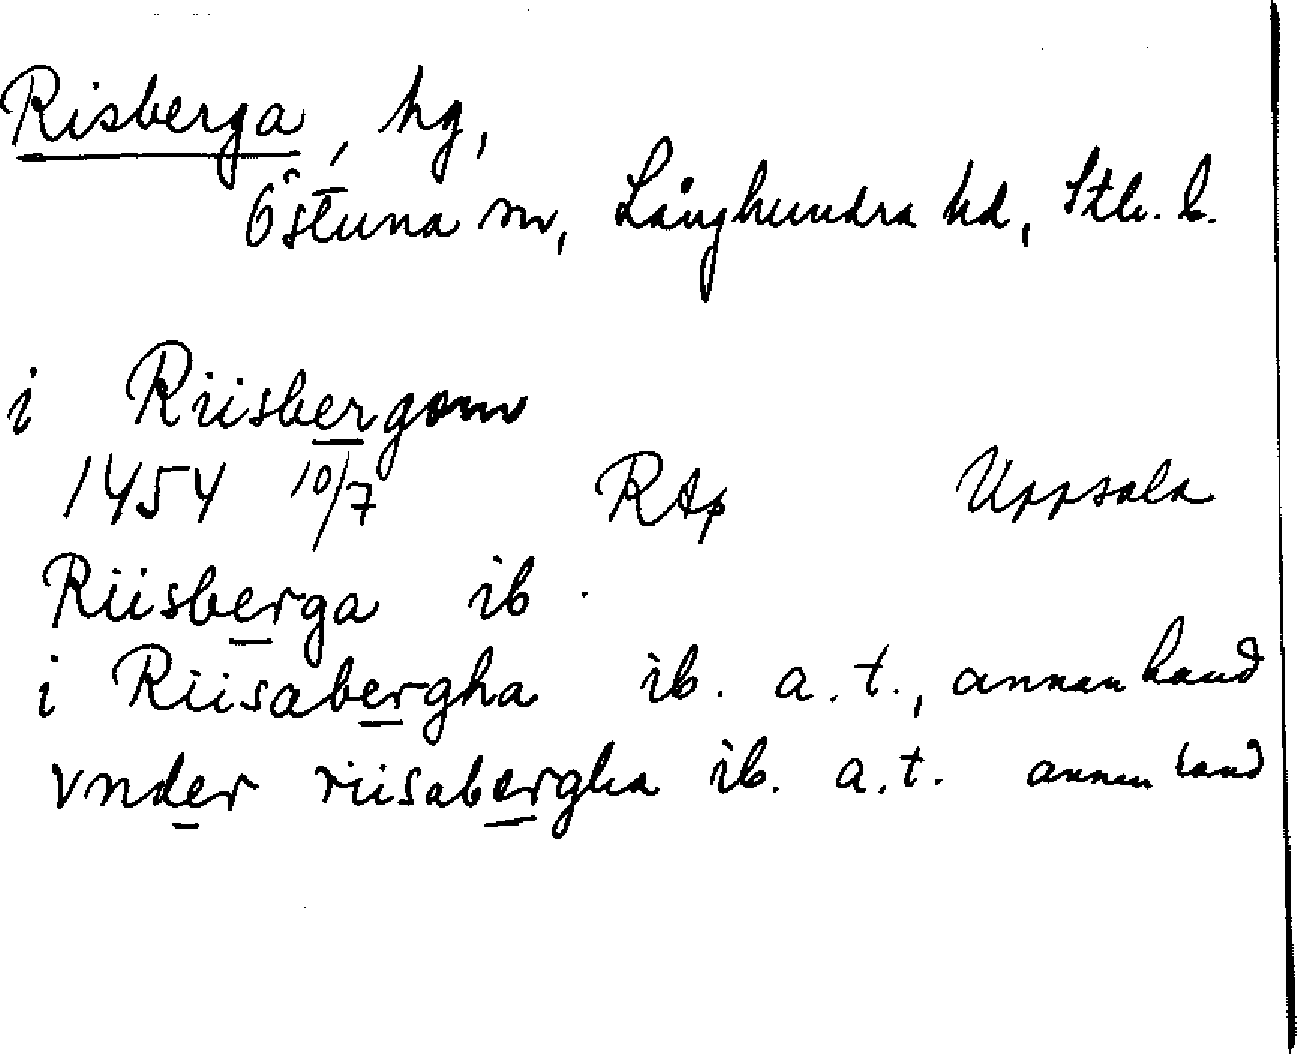 Risberga, hg,
Östuna sn, Långhundra hd, Sthlm. l.
i Riisbergom
1454 10/7 RAp Uppsala
Riisberga ib.
i Riisabergha ib. a. t., annan hand
vnder riisabergha ib. a. t. annan hand